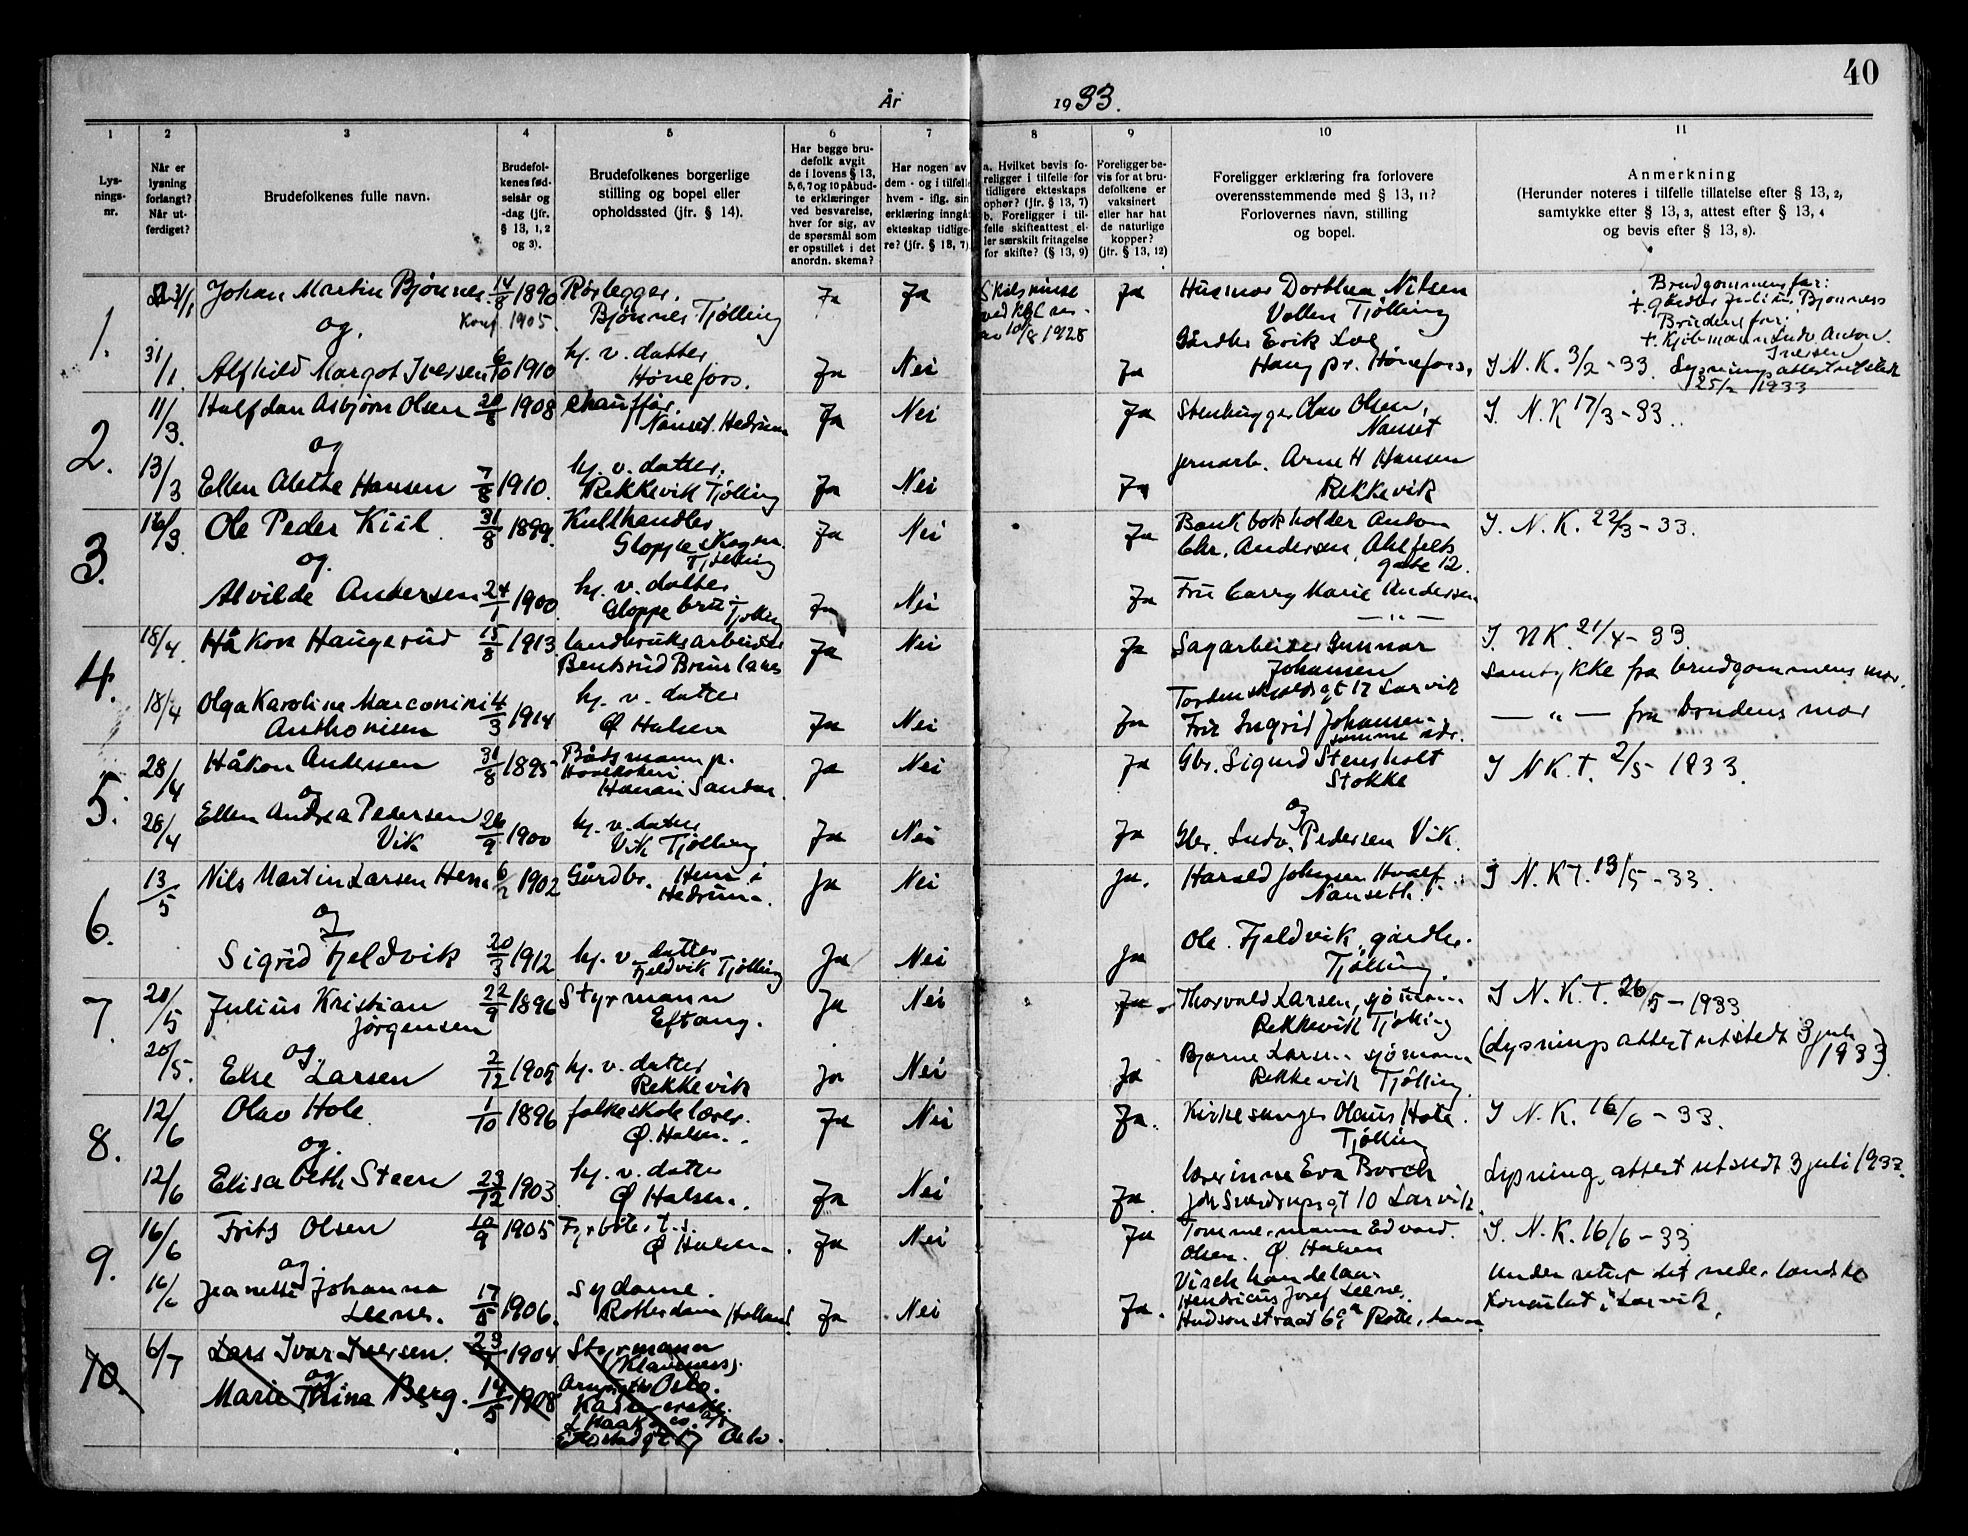 40
År 1933.
1
2
3
4
5
6
7
8
9
10
11
Lys-
nings-
nr.
Når er
lysning
forlangt?
Når ut-
ferdiget?
Brudefolkenes fulle navn.
Brudefol-
kenes fød-
selsår og
-dag (jfr.
§ 13, 1, 2
og 3).
Brudefolkenes borgerlige
stilling og bopel eller
opholdssted (jfr. § 14).
Har begge bru-
defolk avgit
de i lovens § 13,
5, 6, 7 og 10 påbud-
te erklæringer
ved besvarelse,
hver for sig, av
de spørsmål som
er opstillet i det
anordn. skema?
Har nogen av
dem - og i tilfelle
hvem - iflg. sin
erklæring inngåt
ekteskap tidlige-
re? (jfr. § 13, 7).
a. Hvilket bevis fo-
religger i tilfelle for
tidligere ekteskaps
ophør? (jfr. § 13, 7)
b. Foreligger i til-
felle skifteattest el-
ler særskilt fritagelse
for skifte? (§ 13, 9)
Foreligger be-
vis for at bru-
defolkene er
vaksinert
eller har hat
de naturlige
kopper?
(jfr. § 13, 12)
Foreligger erklæring fra forlovere
overensstemmende med § 13, 11?
Forlovernes navn, stilling
og bopel.
Anmerkning
(Herunder noteres i tilfelle tillatelse efter § 13, 2,
samtykke efter § 13, 3, attest efter § 13, 4
og bevis efter § 13, 8).
1.
31/1
Johan Martin Bjønnes.
14/8 1890
Konf. 1905.
Rørlegger.
Bjønnes Tjølling
Ja
Ja
Skilsmisse
10/8 1928
Ja
Husmor Dorthea Nilsen
Vollen Tjølling
Brudgommens far:
+ gårdbr Julius Bjønness
Brudens far:
+ Kjøbmann Ludv. Anton
Iversen
og
31/1.
Alfhild Margot Iversen
6/10 1910
hj. v. datter
Hønefoss.
Ja
Nei
Ja
Gårdbr Erik Loe
Haug pr. Hønefoss.
I N. K. 3/2 - 33. Lysningsattest utstedt
25/2 1933
2.
11/3.
Halfdan Asbjørn Olsen
1908
Chauffør.
Nanset. Hedrum
Ja
Nei
Ja
Stenhugger Olav Olsen,
Nanset
I. N. K 17/3 - 33.
og
13/3
Ellen Alette Hansen
7/8 1910.
hj. v. datter.
Rekkevik Tjølling
Ja
Nei
Ja
Jernarb. Arne H Hansen
Rekkevik
3.
16/3.
Ole Peder Kiil
31/8 1899.
Kullhandler
Gloppeskogen
Tjølling
Ja
Nei
Ja
Bankbokholder Anton
Chr. Andersen, Ahlfelts
gate 12.
I. N. K. 22/3 - 33.
og
Alvilde Andersen
24/1 1900
hj. v. datter
Gloppe bru
Tjølling
Ja
Nei
Ja
Fru Carry Marie Andersen
— " —
4.
18/4.
Håkon Haugerud
15/8 1913.
landbruksarbeider
Bentsrud Brunlanes
Ja
Nei
Ja
Sagarbeider Gunnar
Johansen
Tordenskjoldsgt 17 Larvik
I. NK. 21/4 - 33.
samtykke fra brudgommens mor.
18/4
Olga Karoline Marconini
Anthonisen
4/3 1914
hj. v. datter
Ø Halsen
Ja
Nei
Ja
Fru Ingrid Johansen
samme adr.
— " — fra brudens mor
5.
28/4
Håkon Andersen
31/8 1895
Båtsmann p.
Hvalkokeri
Sandar.
Ja
Nei
Ja
Gbr. Sigurd Stensholt
Stokke
I N K. T. 2/5 1933.
og
28/4
Ellen Andrea Pedersen
Vik
26/9 1900
hj. v. datter
Vik Tjølling
Ja
Nei
Ja
og
Gbr. Ludv. Pedersen Vik.
6.
13/5
Nils Martin Larsen Hem
1902
Gårdbr. Hem i
Hedrum.
Ja
Nei
Ja.
Harald Johnsen Hvalf.
Nanseth.
I N. K T. 13/5 - 33.
og
Sigrid Fjeldvik
20/3 1912
hj. v. datter
Fjeldvik Tjølling
Ja
Nei
Ja
Ole Fjeldvik, gårdbr.
Tjølling.
7.
20/5
Julius Kristian
Jørgensen
22/9 1896
Styrmann
Eftang.
Ja
Nei
Ja.
Thorvald Larsen, sjømann
Rekkevik Tjølling
I N. K. T. 26/5 - 1933
(Lysningsattest utstedt 3 juli
1933)
og
20/5.
Else Larsen
2/12 1909
hj. v. datter
Rekkevik
Ja
Nei
Ja
Bjarne Larsen sjømann
Rekkevik Tjølling
8.
12/6
Olav Hole
1/10 1896
folkeskolelærer
Ø. Halsen.
Ja
Nei
Ja.
Kirkesanger Olaus Hole.
Tjølling
I N. K. 16/6 - 33.
og.
12/6
Elisabeth Steen
23/12 1903
hj. v. datter
Ø Halsen.
Ja
Nei
Ja.
lærerinne Eva Borch
Joh Sverdrupsgt 10 Larvik
Lysningsattest utstedt 3 juli 1933.
9.
16/6
Frits Olsen
10/9 1905
Fyrbøter
Ø Halsen.
Ja
Nei
Ja
Tømmermann Edvard.
Olsen. Ø. Halsen
I. N. K. 16/6 - 33
og
16/6
Jeanette Johanna
Leenes.
17/5 1906.
Sydame.
Rotterdam Holland
Ja
Nei
Ja.
Hendricus Josef Leene.
Hudsonstraat 69a Rotterdam
Under retur det nederlandske
Konsulat i Larvik.
10.
6/7
Lars Ivar Iversen.
1904
Styrmann
og
Marie Thina Berg.
14/5 1908
Oslo.
Oslo.